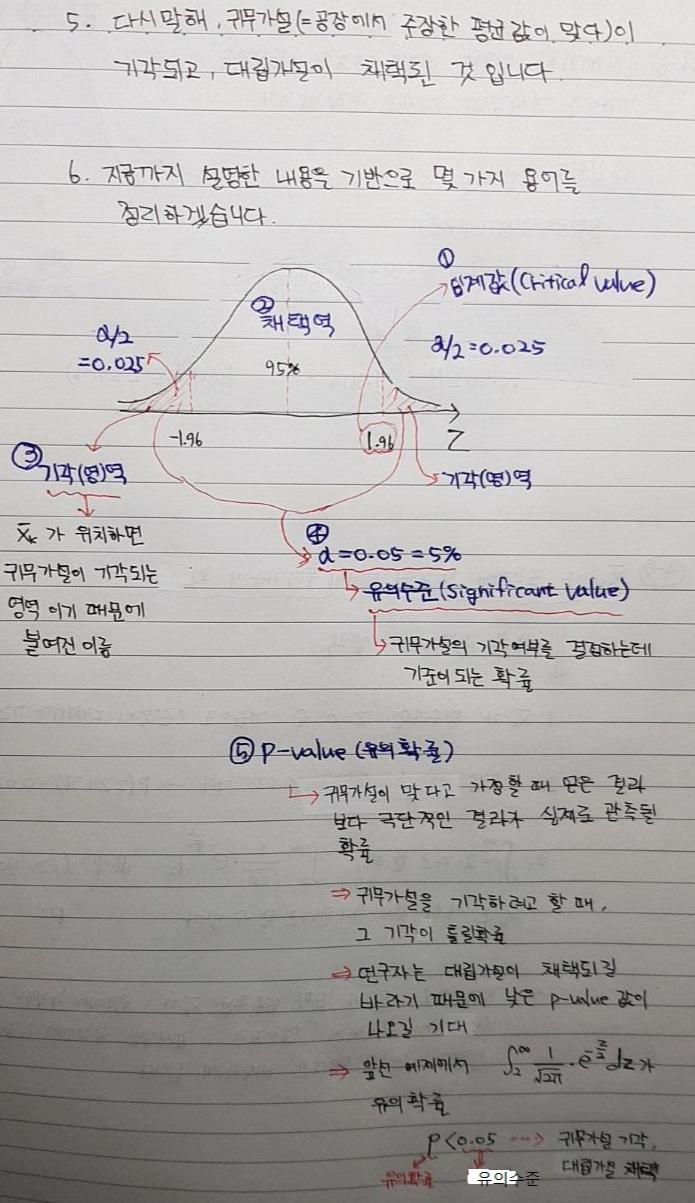 5. 다시말해, 귀무가설(=공장에서 주장한 평균값이 맞다)이
기각되고, 대립가설이 채택된 것 입니다.
6. 지금까지 설명한 내용을 기반으로 몇 가지 용어를
정리하겠습니다.
①
임계값(Critical value)
②
채택역
95%
α/2
=0.025
α/2=0.025
-1.96
1.96
Z
③
기각(영)역
기각(영)역
x̄ₖ가 위치하면
귀무가설이 기각되는
영역 이기 때문에
붙여진 이름
④
α=0.05=5%
유의수준(Significant value)
귀무가설의 기각여부를 결정하는데
기준이 되는 확률
⑤ P-value (유의확률)
귀무가설이 맞다고 가정할 때 얻은 결과
보다 극단적인 결과가 실제로 관측될
확률
⇒ 귀무가설을 기각하려고 할 때,
그 기각이 틀릴확률
⇒ 연구자는 대립가설이 채택되길
바라기 때문에 낮은 p-value 값이
나오길 기대
⇒ 앞선 예제에서 ∫₂^∞ 1/√2π · e^-z/2 dz가
유의확률
P<0.05 ⋯> 귀무가설 기각,
대립가설 채택
유의확률
유의수준